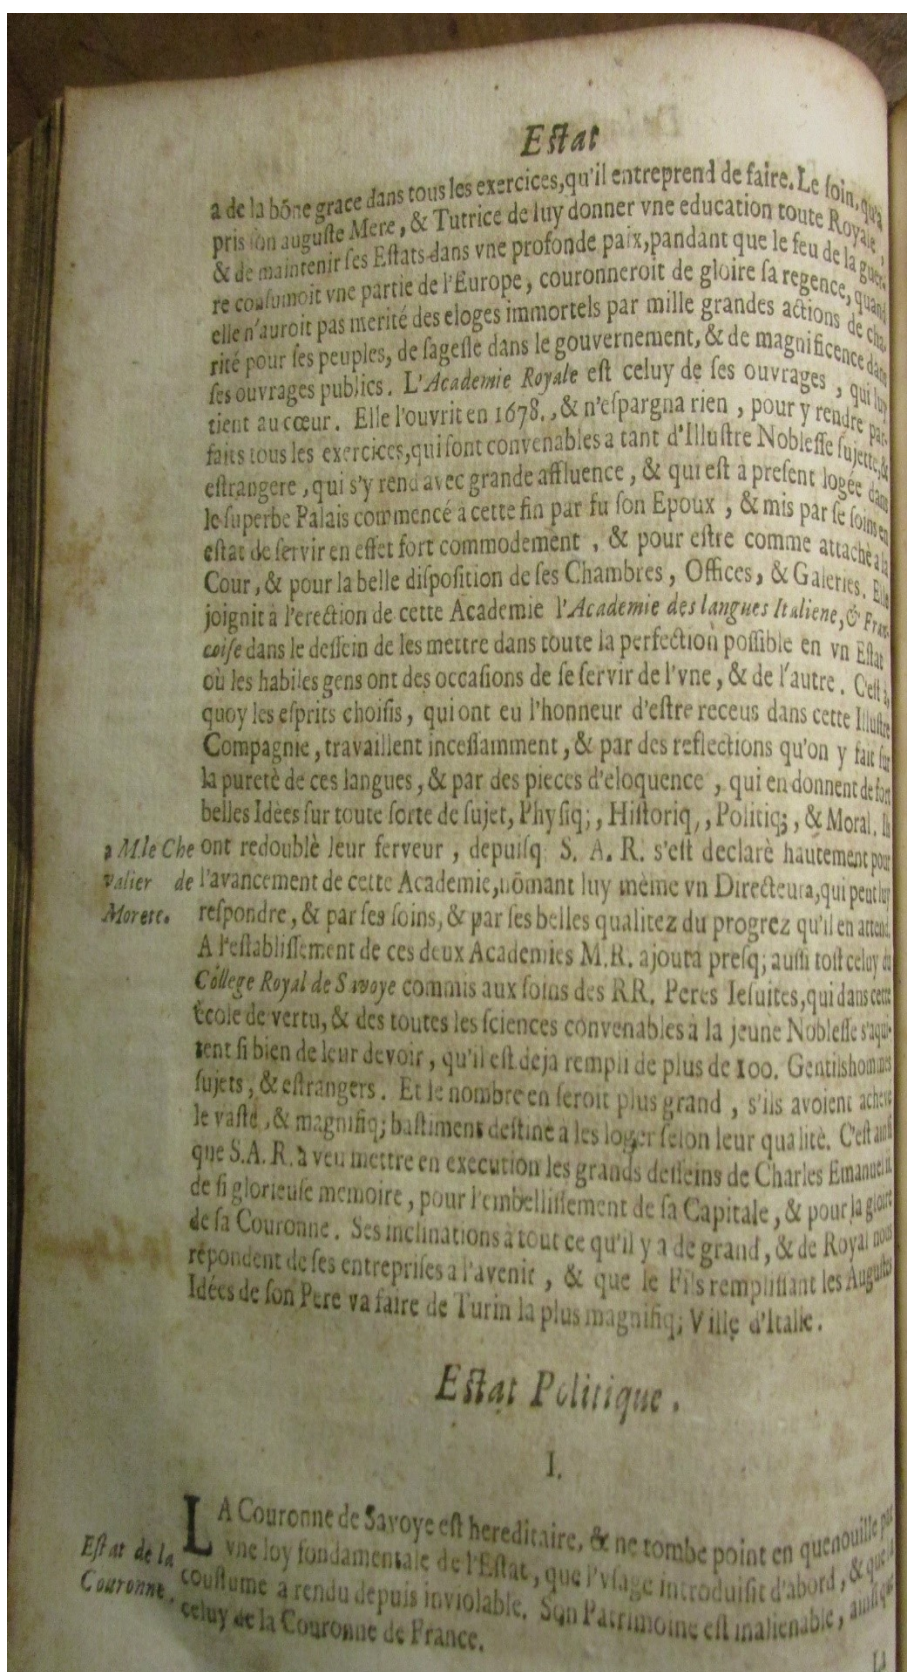 Eſtat
a de la bõne grace dans tous les exercices, qu'il entreprend de faire. Le ſoin, qu'a
pris ſon auguſte Mere, & Tutrice de luy donner vne education toute Royale,
& de maintenir ſes Eſtats dans vne profonde paix, pandant que le feu de la guer-
re conſumoit vne partie de l'Europe, couronneroit de gloire ſa regence, quand
elle n'auroit pas merité des eloges immortels par mille grandes actions de cha-
rité pour ſes peuples, de ſageſſe dans le gouvernement, & de magnificence dans
ſes ouvrages publics. L'Academie Royale eſt celuy de ſes ouvrages, qui luy
tient au cœur. Elle l'ouvrit en 1678., & n'eſpargna rien, pour y rendre par-
faits tous les exercices, qui ſont convenables a tant d'Illuſtre Nobleſſe ſujette, &
eſtrangere, qui s'y rend avec grande affluence, & qui eſt a preſent logée dans
le ſuperbe Palais commencé a cette fin par fu ſon Epoux, & mis par ſe ſoins en
eſtat de ſervir en effet fort commodement, & pour eſtre comme attachè a la
Cour, & pour la belle diſpoſition de ſes Chambres, Offices, & Galeries. Elle
joignit à l'erection de cette Academie l'Academie des langues Italiene, & Fran-
coiſe dans le deſſein de les mettre dans toute la perfection poſſible en vn Eſtat
où les habiles gens ont des occaſions de ſe ſervir de l'vne, & de l'autre. C'eſt a
quoy les eſprits choiſis, qui ont eu l'honneur d'eſtre receus dans cette Illuſtre
Compagnie, travaillent inceſſamment, & par des reflections qu'on y fait ſur
la puretè de ces langues, & par des pieces d'eloquence, qui en donnent de fort
belles Idées ſur toute ſorte de ſujet, Phyſiq;, Hiſtoriq,, Politiq;, & Moral. Ils
ont redoublè leur ferveur, depuiſq S. A. R. s'eſt declarè hautement pour
a M. le Che
l'avancement de cette Academie, nõmant luy mème vn Directeura, qui peut luy
valier de
reſpondre, & par ſes ſoins, & par ſes belles qualitez du progrez qu'il en attend.
Morett.
A l'eſtabliſſement de ces deux Academies M. R. ajouta preſq; auſſi toſt celuy du
College Royal de Savoye commis aux ſoins des RR. Peres Ieſuites, qui dans cette
ècole de vertu, & des toutes les ſciences convenables à la jeune Nobleſſe s'aqui-
tent ſi bien de leur devoir, qu'il eſt deja rempli de plus de 100. Gentilshommes
ſujets, & eſtrangers. Et le nombre en ſeroit plus grand, s'ils avoient achevè
le vaſte, & magnifiq; baſtiment deſtinè a les loger ſelon leur qualitè. C'eſt auſſi
que S. A. R. à veu mettre en execution les grands deſſeins de Charles Emanuel II.
de ſi glorieuſe memoire, pour l'embelliſſement de ſa Capitale, & pour la gloire
de ſa Couronne. Ses inclinations à tout ce qu'il y a de grand, & de Royal nous
répondent de ſes entrepriſes a l'avenir, & que le Fils rempliſſant les Auguſtes
Idées de ſon Pere va faire de Turin la plus magnifiq; Ville d'Italie.
Eſtat Politique.
I.
LA Couronne de Savoye eſt hereditaire, & ne tombe point en quenouille par
vne loy fondamentale de l'Eſtat, que l'vſage introduiſit d'abord, & que la
Eſtat de la
Couronne.
couſtume a rendu depuis inviolable. Son Patrimoine eſt inalienable, auſſique
celuy de la Couronne de France.